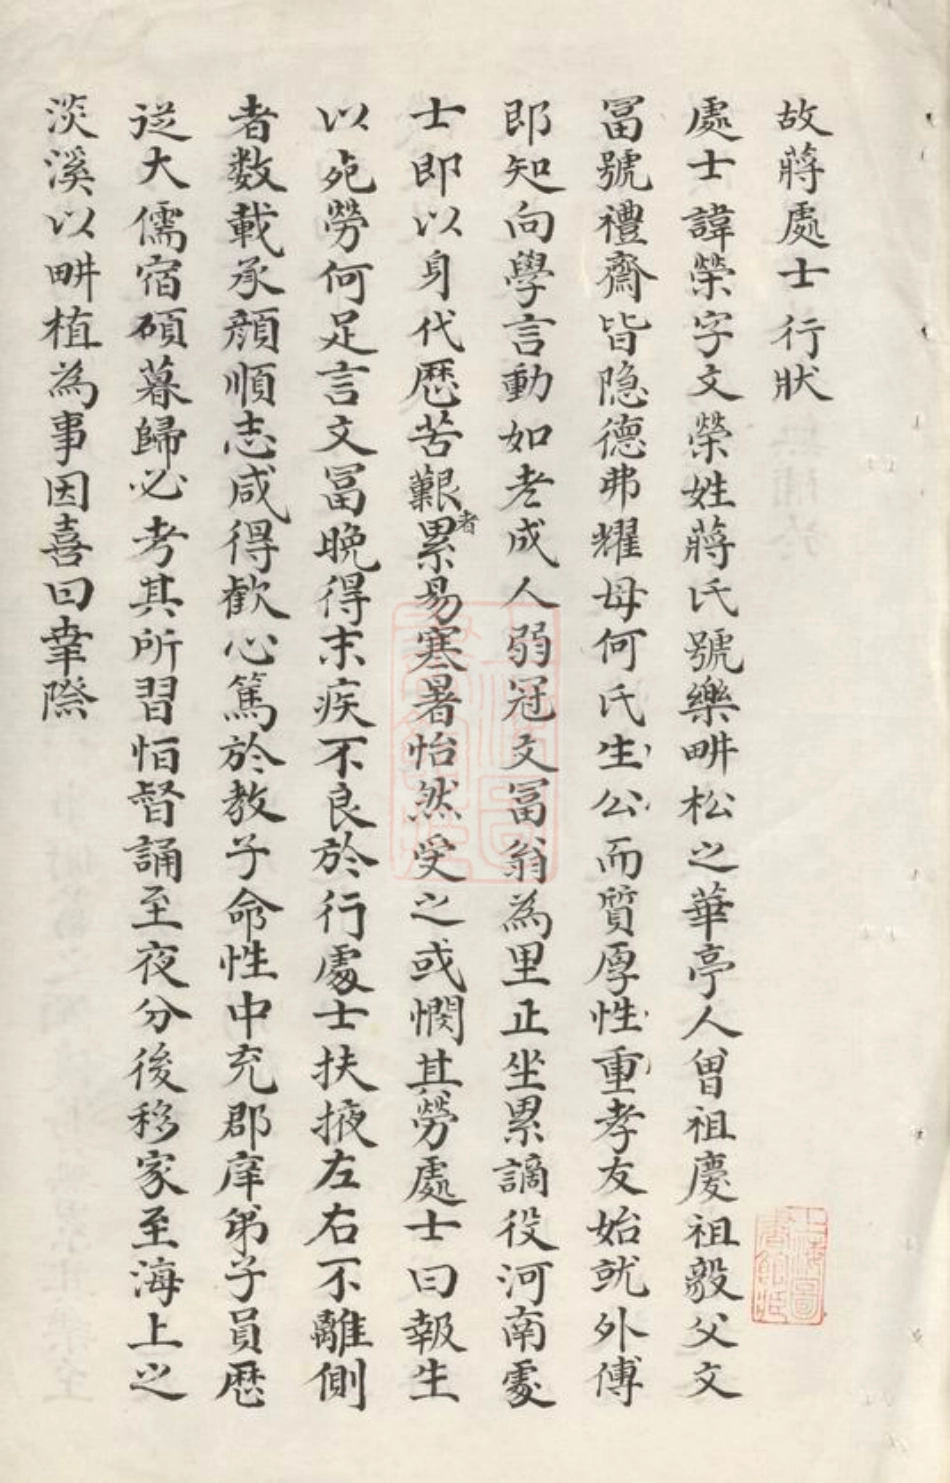 故蔣處士行狀
處士諱榮字文榮姓蔣氏號樂畊松之華亭人曾祖慶祖毅父文
冨號禮齋皆隐德弗耀母何氏生公而質厚性重孝友始就外傅
即知向學言動如老成人弱冠文冨翁為里正坐累謫役河南處
士即以身代歷苦艱累者易寒暑怡然受之或憫其勞處士曰報生
以死勞何足言文冨晚得末疾不良於行處士扶掖左右不離側
者数載承顔順志咸得歡心篤於教子命性中充郡庠弟子員歷
從大儒宿碩暮歸必考其所習恒督誦至夜分後移家至海上之
淡溪以畊植為事因喜曰幸際
上海圖書館藏